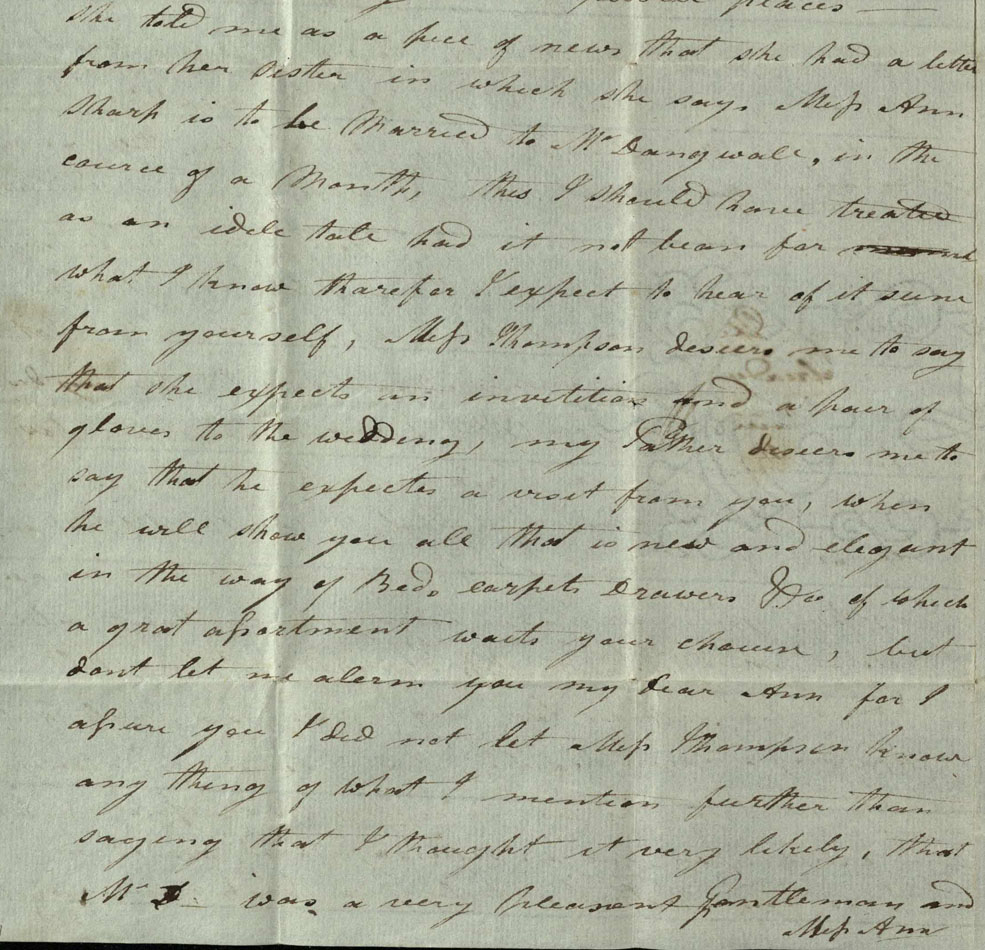 places —
she told me as a pece of news that she had a letter
from her Sister in which she says Miſs Ann
Sharp is to be Married to Mr Dangwale, in the
cource of a Month, this I should have treated
as an idele tale had it not bean for
what I know tharefor I expect to hear of it sune
from yourself, Miſs Thompson desiers me to say
that she expects an invitition and a pair of
gloves to the wedding, my Father desiers me to
say that he expectes a visit from you, when
he will show you all that is new and elegant
in the way of Beds carpets Drawers &c of which
a grat aſsortment waits your chouse, but
dont let me alerm you my Dear Ann for I
aſsure you I did not let Miſs Thompson know
any thing of what I mention further than
saying that I thought it very likely, that
Mr D— was a very pleasent Gentleman and
Miſs Ann